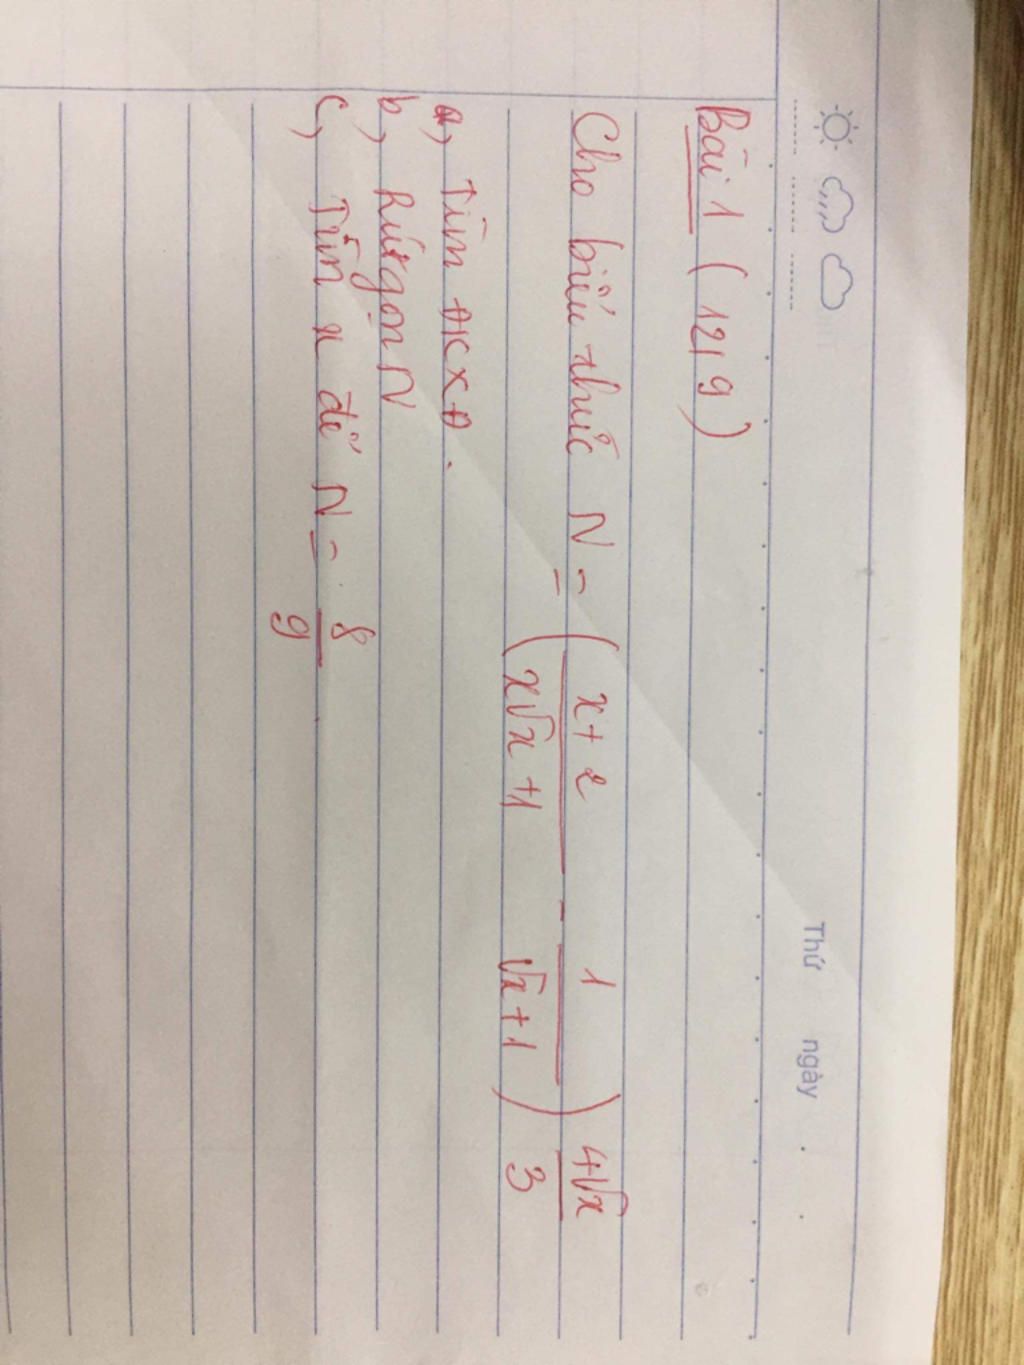 Thứ ngày
Bài 1 ( 12/9 )
Cho biểu thức N = ( x+2 / x√x +1 - 1 / √x+1 ) 4√x / 3
a, Tìm ĐKXĐ.
b, Rút gọn N
c, Tìm x để N = 8 / 9